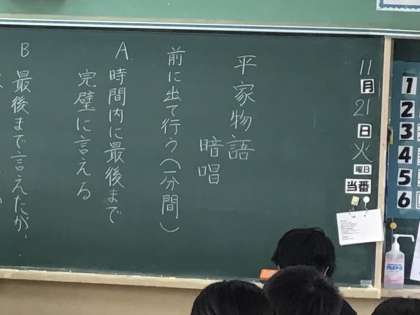 11月21日火曜日
当番
平家物語
暗唱
前に出て行う(一分間)
A 時間内に最後まで
完璧に言える
B 最後まで言えたが、
1
2
3
4
5
6